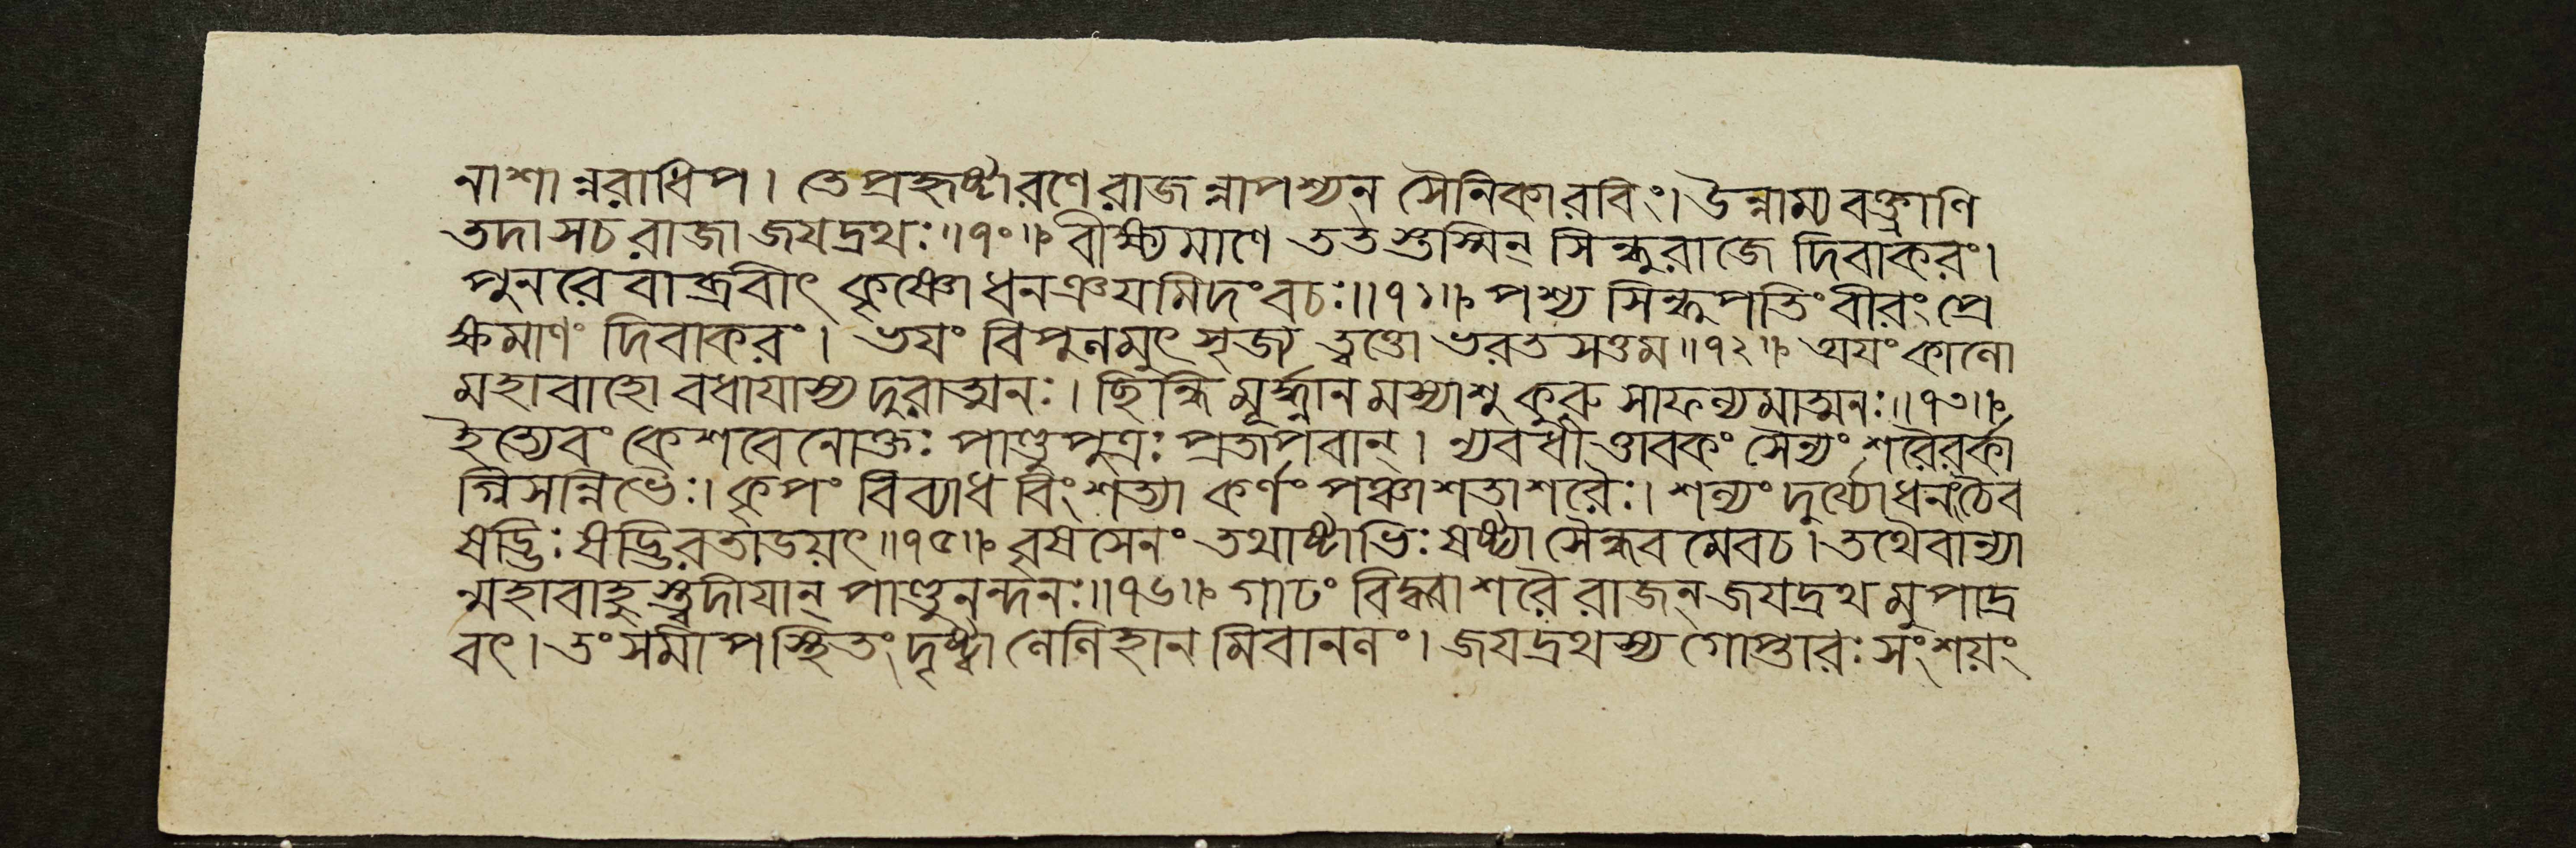 নাশান্নরাধিপ। তেপ্রহৃষ্টারণেরাজন্নাপশ্যন সৈনিকারবিং। উন্নাম্য বক্ত্রাণি
তদাসচরাজাজযদ্রথঃ॥৭০॥ বীক্ষ্যমাণে ততস্তস্মিন্ সিন্ধুরাজে দিবাকরং।
পুনরেবাব্রবীৎ কৃষ্ণোধনঞযমিদংবচঃ॥৭১॥ পশ্য সিন্ধুপতিংবীরংপ্রে
ক্ষমাণং দিবাকরং। ভযং বিপুলমুৎসৃজ্য ত্বত্তো ভরতসত্তম॥৭২॥ অযংকালো
মহাবাহো বধাযাস্য দুরাত্মনঃ। ছিন্ধি মূর্দ্ধানমস্যাশু কুরু সাফল্যমাত্মনঃ॥৭৩॥
ইত্যেবং কেশবেনোক্তঃ পাণ্ডুপুত্রঃ প্রতাপবান্। ন্যবধীত্তাবকং সৈন্যং শরৈরর্কা
গ্নিসন্নিভৈঃ। কৃপং বিব্যাধ বিংশত্যা কর্ণং পঞ্চাশতাশরৈঃ। শল্যং দুর্য্যোধনংচৈব
ষড্ভিঃ ষড্ভিরতাডয়ৎ॥৭৫॥ বৃষসেনং তথাষ্টাভিঃ ষষ্ট্যা সৈন্ধবমেবচ। তথৈবান্যা
ন্মহাবাহুস্ত্বদীযান্ পাণ্ডুনন্দনঃ॥৭৬॥ গাঢং বিদ্ধ্বাশরৈ রাজন্ জযদ্রথমুপাদ্র
বৎ। তংসমীপস্থিতংদৃষ্ট্বা লেলিহানমিবানলং। জযদ্রথস্য গোপ্তারঃ সংশয়ং